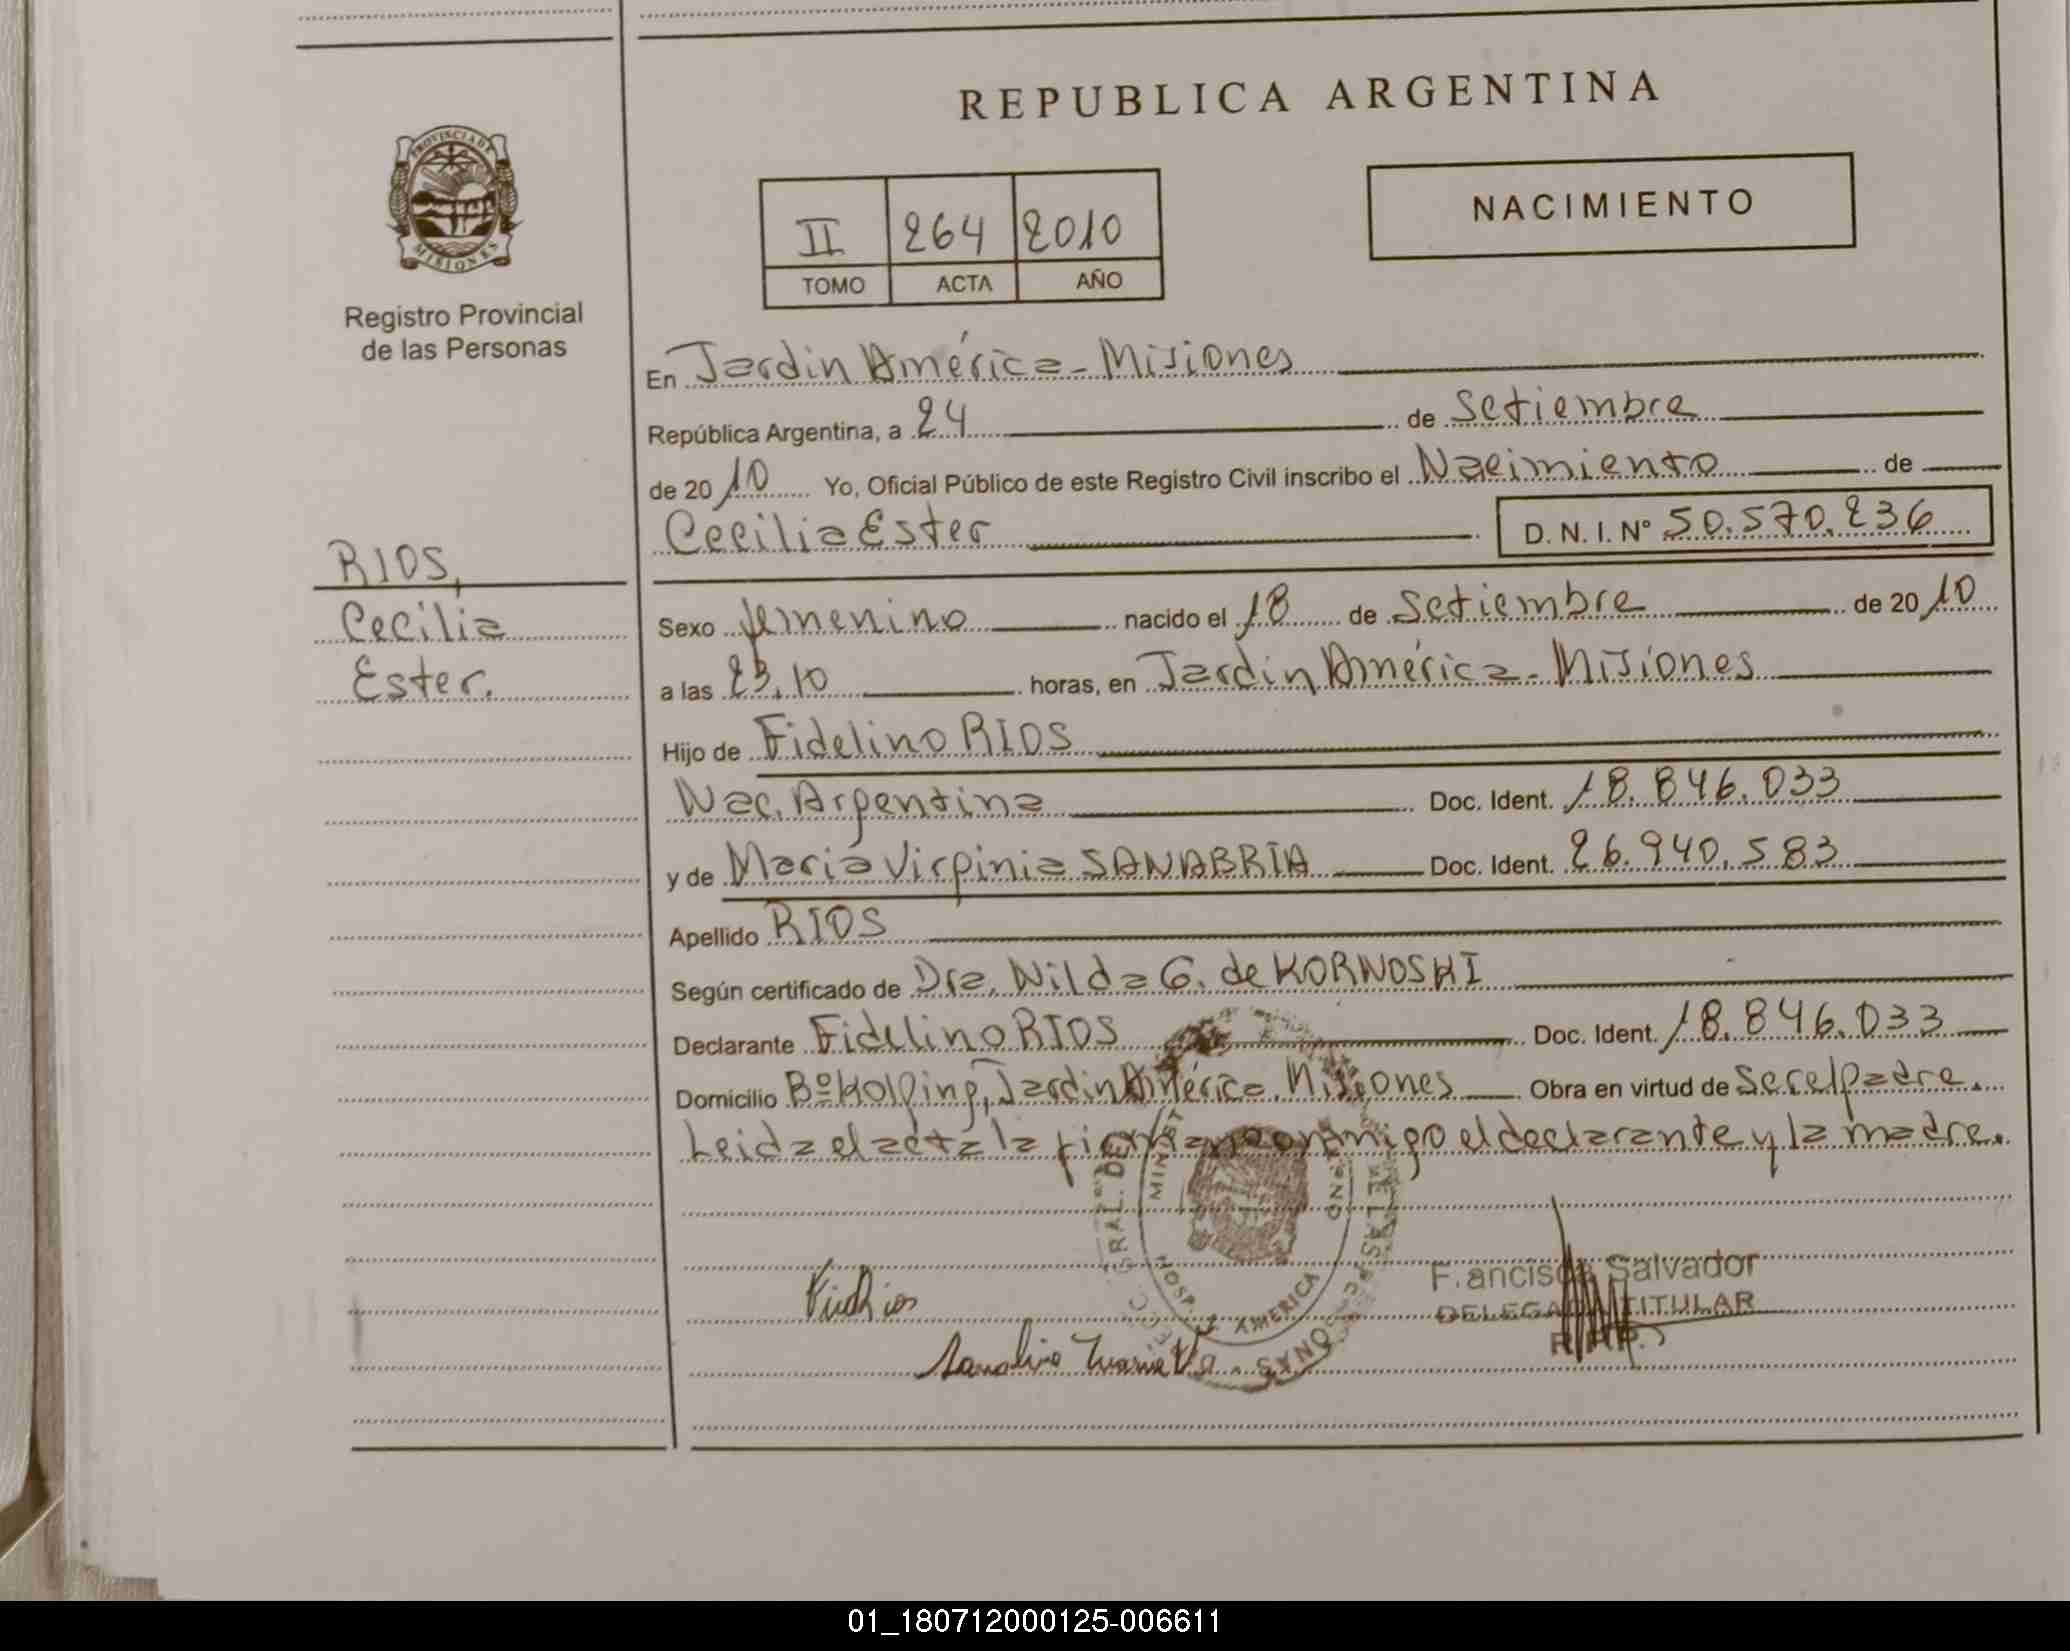 REPUBLICA ARGENTINA
PROVINCIA DE MISIONES
Registro Provincial
de las Personas
II 264 2010
TOMO ACTA AÑO
NACIMIENTO
En Jardin América - Misiones
República Argentina, a 24 de Setiembre
de 2010 Yo, Oficial Público de este Registro Civil inscribo el Nacimiento de
Cecilia Ester D. N. I. Nº 50.570.236
RIOS,
Cecilia
Ester.
Sexo femenino nacido el 18 de Setiembre de 2010
a las 23.10 horas, en Jardin América - Misiones
Hijo de Fidelino RIOS
Nac. Argentina Doc. Ident. 18.846.033
y de Maria Virginia SANABRIA Doc. Ident. 26.940.583
Apellido RIOS
Según certificado de Dra. Nilda G. de KORNOSKI
Declarante Fidelino RIOS Doc. Ident. 18.846.033
Domicilio Bº Kolping, Jardin América. Misiones Obra en virtud de Ser el padre.
Leida el acta la firman conmigo el declarante y la madre.
GRAL. DE
MINIST
HOSP. AMERICA
Francisco Salvador
DELEGADO TITULAR
R.P.P.
01_180712000125-006611